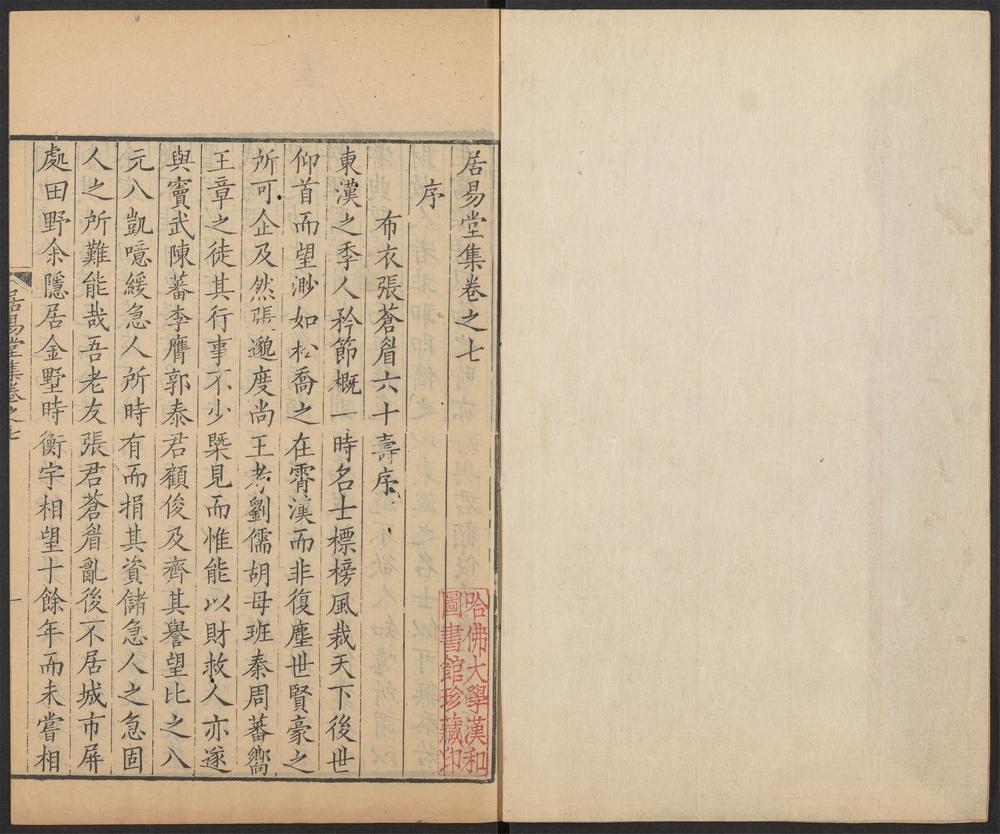 居易堂集卷之七
序
布衣張蒼眉六十壽序
東漢之季人矜節概一時名士標榜風裁天下後世
仰首而望渺如松喬之在霄漢而非復塵世賢豪之
所可企及然張邈度尚王考劉儒胡母班秦周蕃嚮
王章之徒其行事不少槩見而惟能以財救人亦遂
與竇武陳蕃李膺郭泰君顧俊及齊其譽望比之八
元八凱噫緩急人所時有而捐其資儲急人之急固
人之所難能哉吾老友張君蒼眉亂後不居城市屏
處田野余隱居金墅時衡宇相望十餘年而未嘗相
居易堂集卷之七
一
哈佛大學漢和
圖書館珍藏印